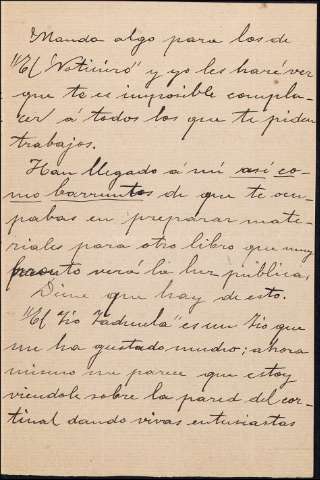 Manda algo para los de
"El Noticiero" y yo les haré ver
que te es imposible compla-
cer á todos los que te piden
trabajos.
Han llegado á mí así co-
mo barruntos de que te ocu-
pabas en preparar mate-
riales para otro libro que muy
pronto verá la luz pública.
Dime que hay de esto.
"El Tío" es un tío que
me ha gustado mucho; ahora
mismo me parece que estoy
viendole sobre la pared del cor-
tinal dando vivas entusiastas